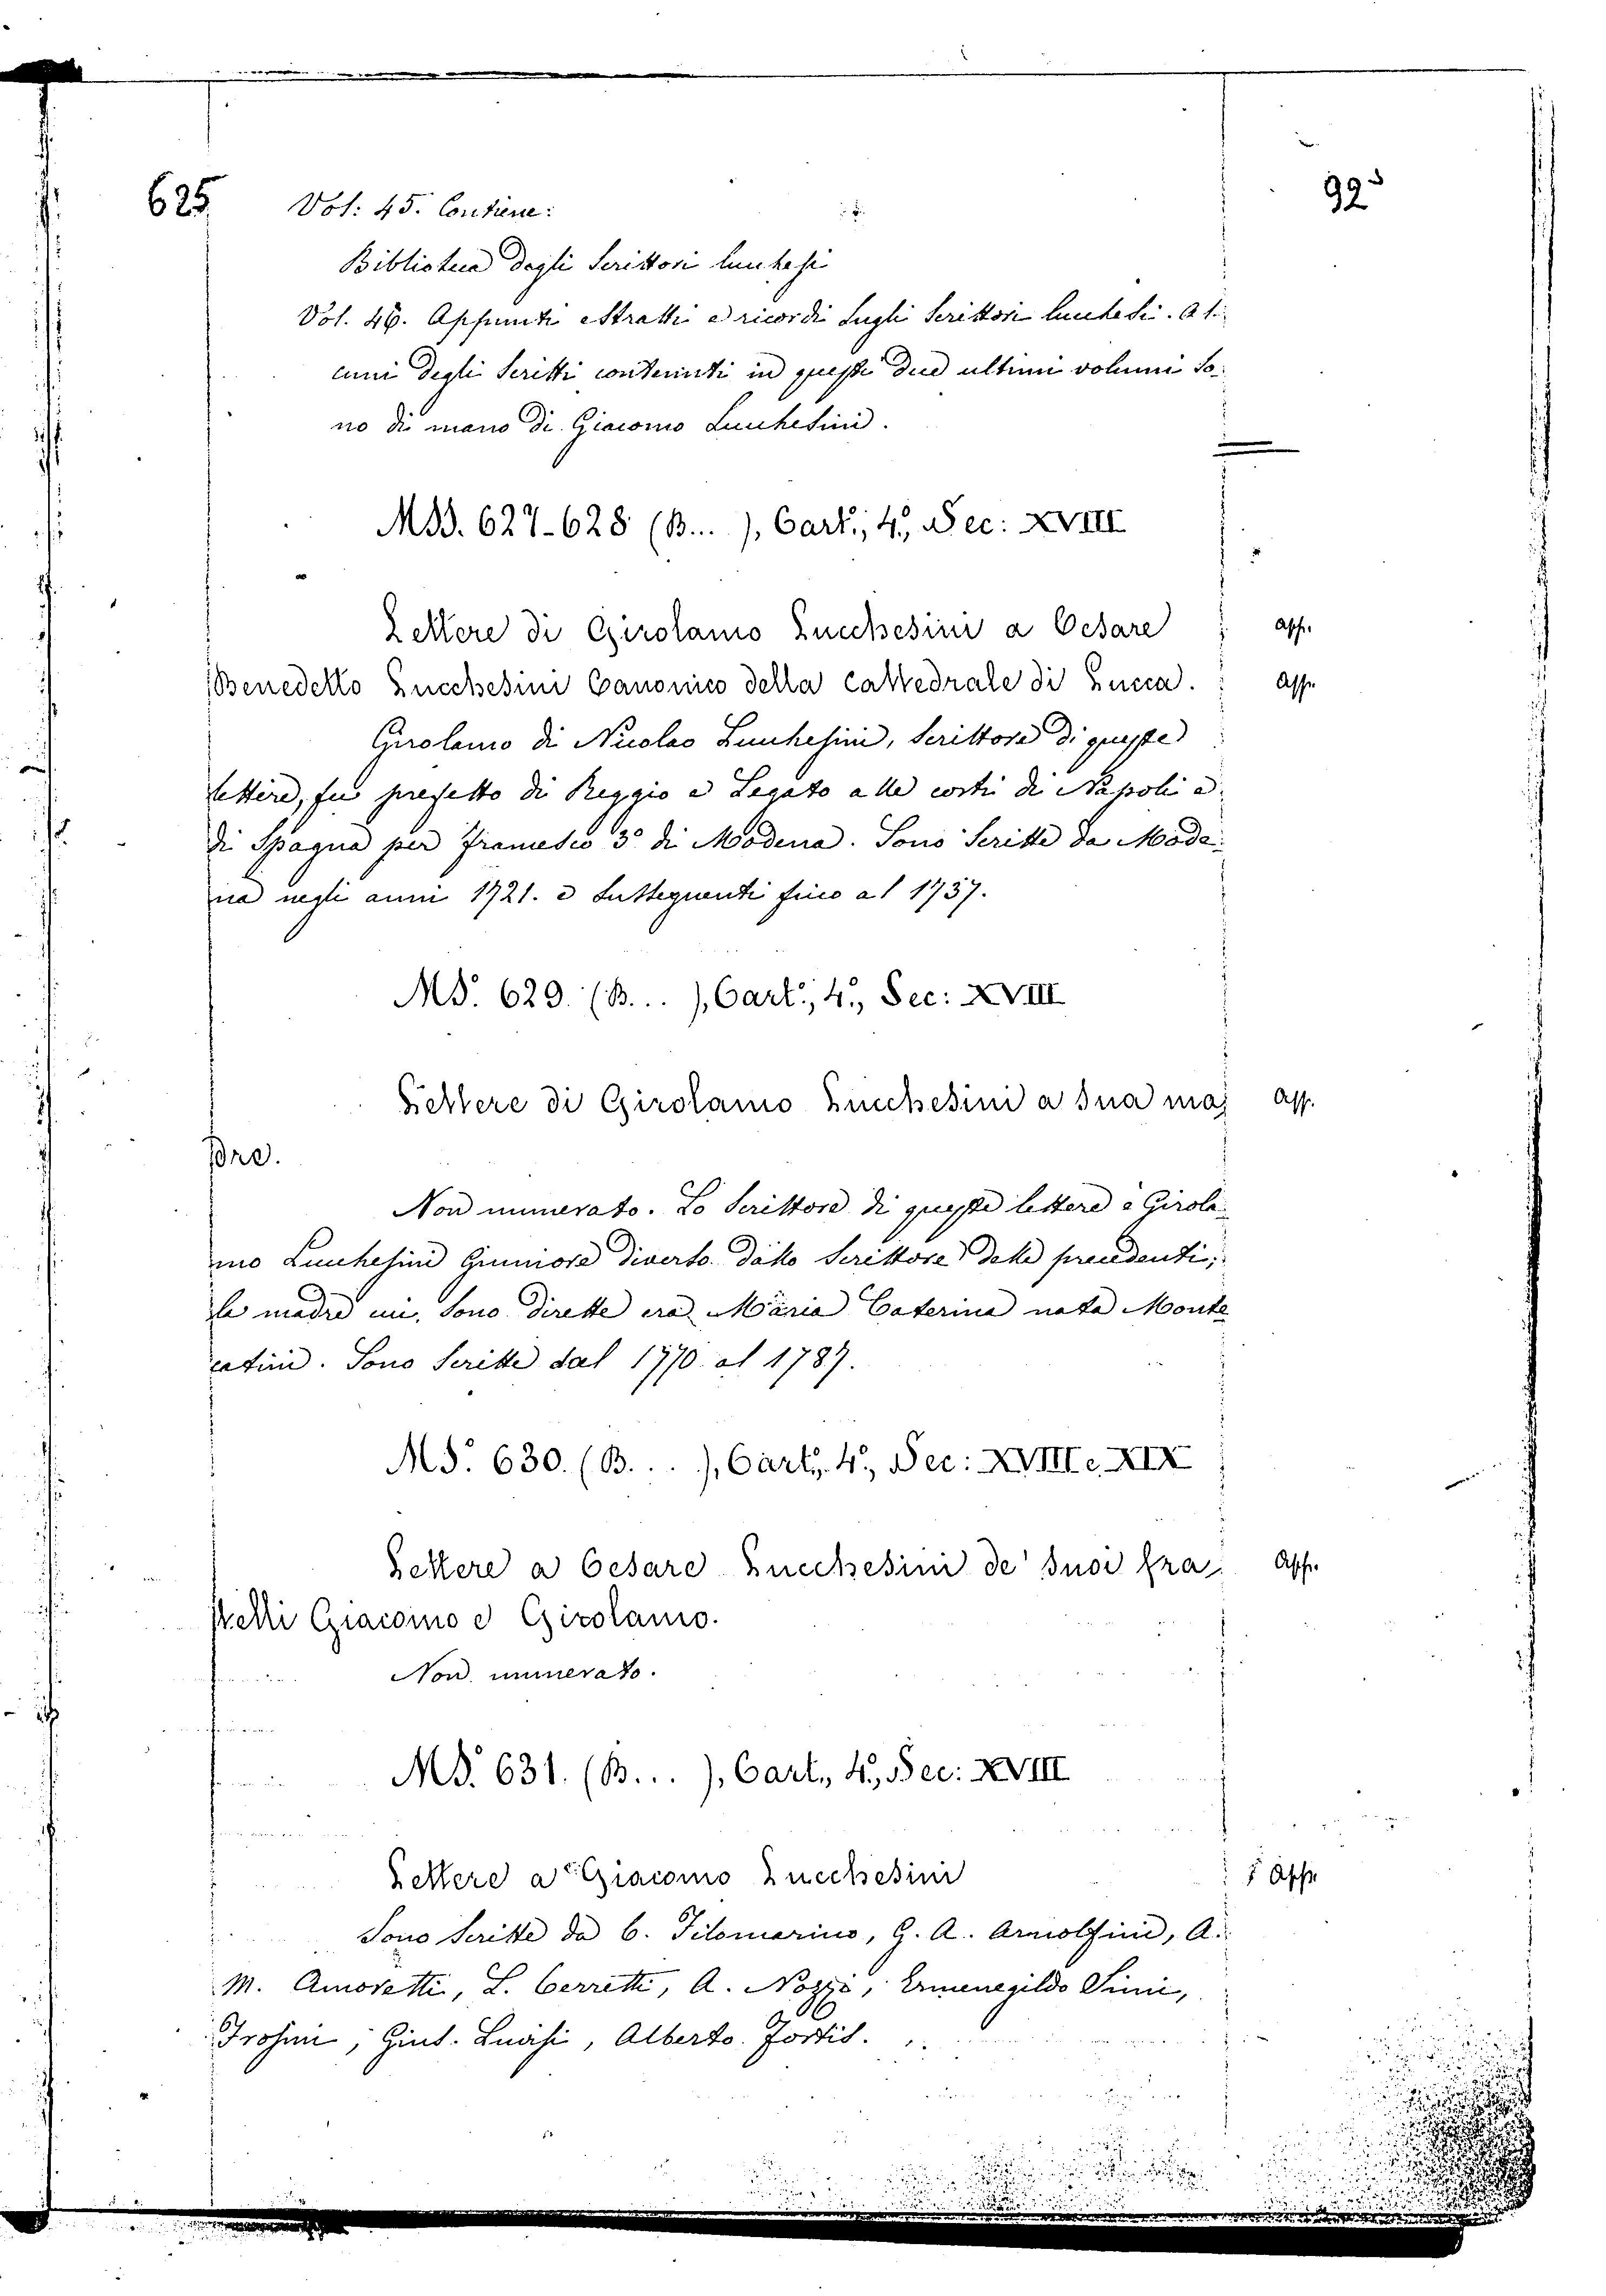 625
92
Vol: 45. Contiene:
Biblioteca degli Scrittori lucchesi
Vol. 46. Appunti estratti e ricordi sugli Scrittori lucchesi. Al-
cuni degli Scritti contenuti in questi due ultimi volumi so-
no di mano di Giacomo Lucchesini.
MSS. 627-628 (B... ), Cart:, 4º, Sec: XVIII
Lettere di Girolamo Lucchesini a Cesare App.
Benedetto Lucchesini Canonico della Cattedrale di Lucca. App.
Girolamo di Nicolao Lucchesini, scrittore di queste
lettere, fu prefetto di Reggio e Legato alle corti di Napoli e
di Spagna per Francesco 3º di Modena. Sono scritte da Mode-
na negli anni 1721. e susseguenti fino al 1737.
MS. 629. (B... ), Cart:, 4º, Sec: XVIII
Lettere di Girolamo Lucchesini a sua ma- App.
dre.
Non numerato. Lo scrittore di queste lettere è Girola-
mo Lucchesini Giuniore diverso dallo Scrittore delle precedenti;
la madre cui sono dirette era Maria Caterina nata Monte
catini. Sono scritte dal 1770 al 1787.
MS. 630. (B... ), Cart:, 4º, Sec: XVIII e XIX
Lettere a Cesare Lucchesini de' suoi fra- App.
telli Giacomo e Girolamo.
Non numerato.
MS. 631. (B... ), Cart., 4º, Sec: XVIII
Lettere a Giacomo Lucchesini App.
Sono scritte da C. Filomarino, G. A. Arnolfini, A.
M. Amoretti, L. Cerretti, A. Nozzi, Ermenegildo Pini,
Giul. Alberto Fortis.